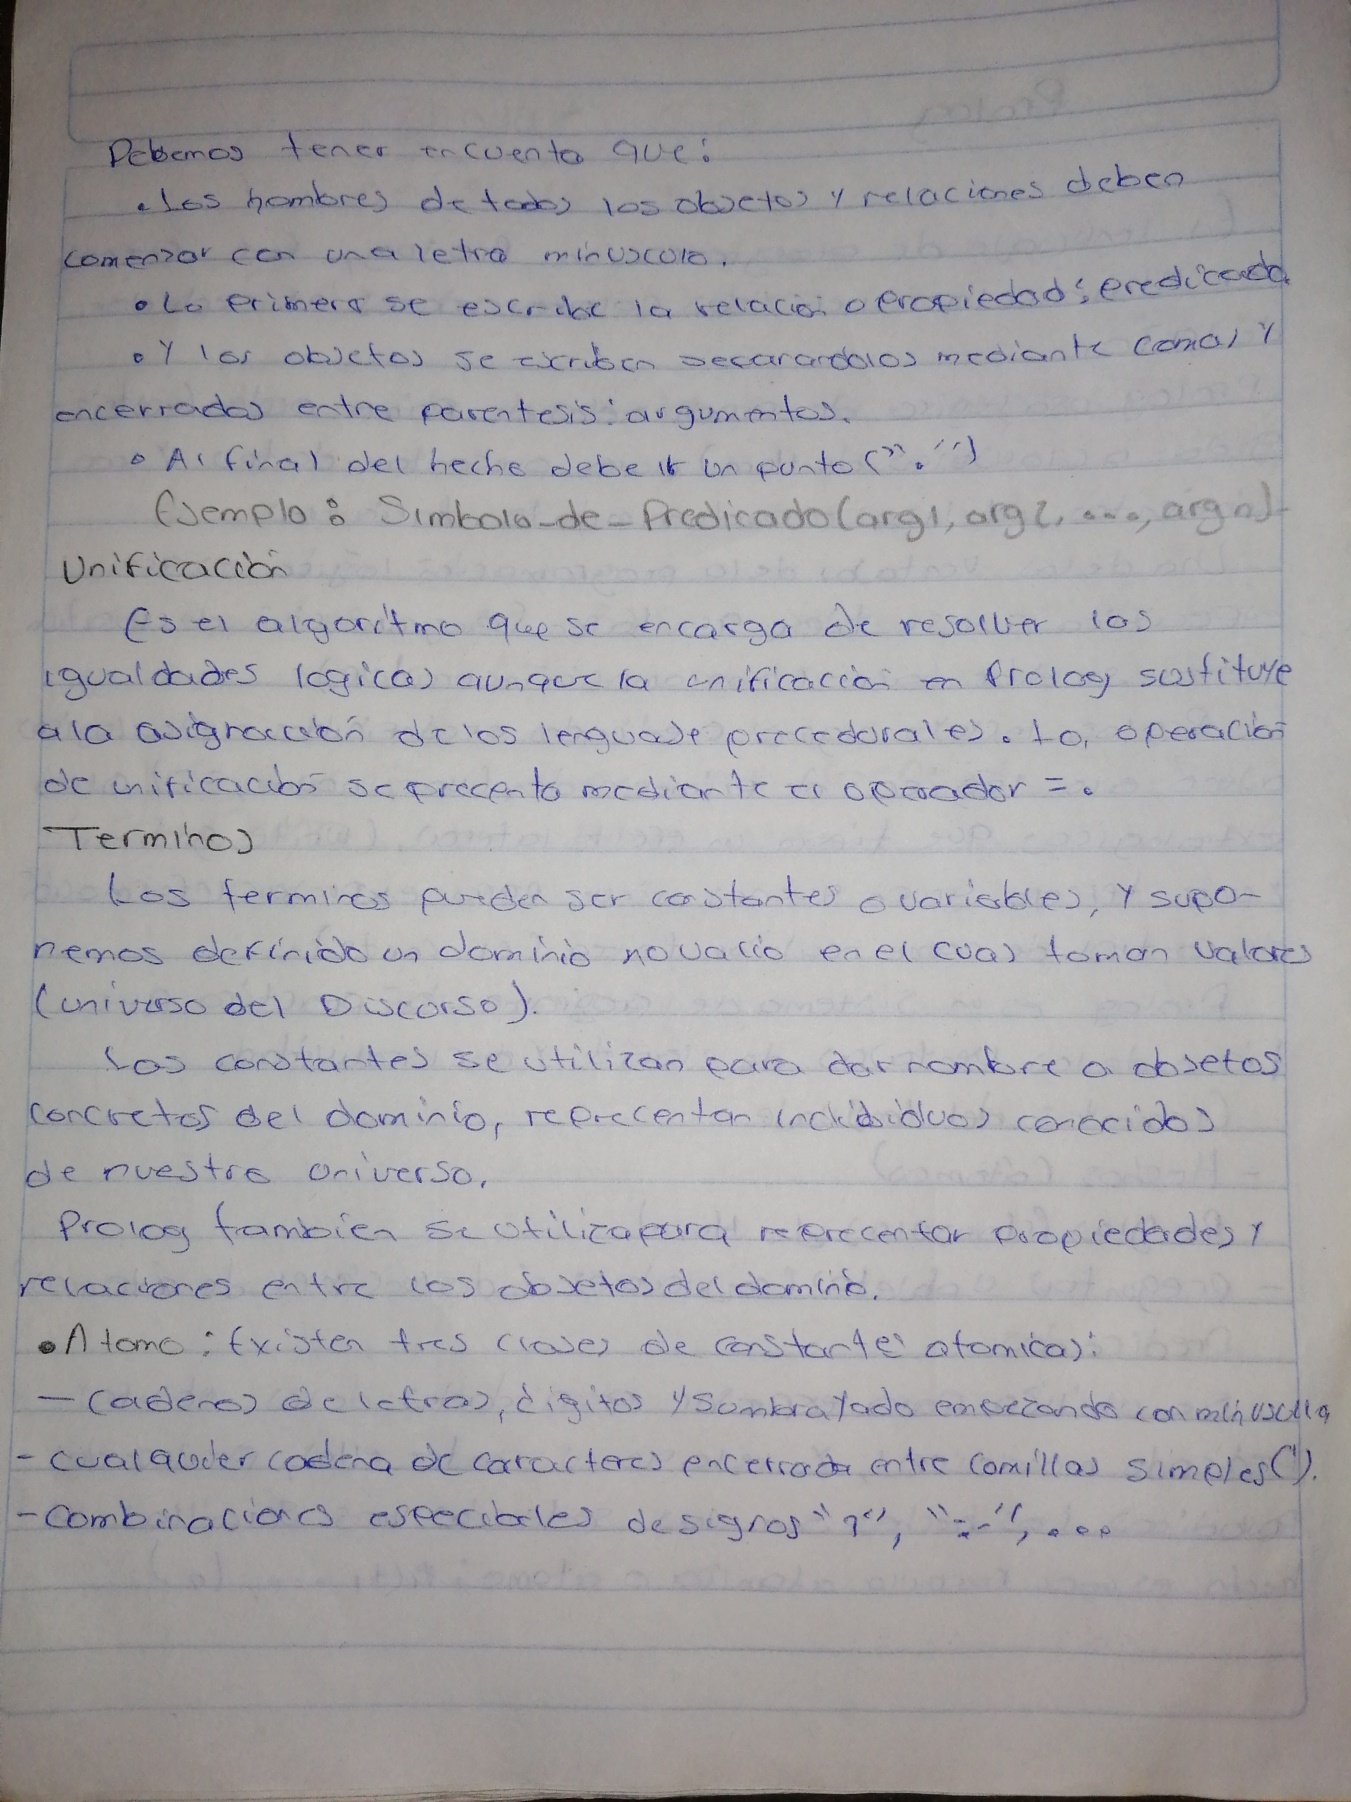 Debemos tener encuenta que:
• Los nombres de todos los objetos y relaciones deben
comenzar con una letra minuscula.
• Lo primero se escribe la relación o propiedad: predicado
• Y los objetos se escriben separandolos mediante comas y
encerrados entre parentesis: argumentos.
• Al final del hecho debe ir un punto (".")
Ejemplo: Simbolo_de_Predicado(arg1, arg2, ..., argn).
Unificación
Es el algoritmo que se encarga de resolver las
igualdades logicas aunque la unificación en Prolog sustituye
a la asignacción de los lenguaje procedurales. La operación
de unificación se precenta mediante el operador =.
Terminos
Los terminos pueden ser constantes o variables, y supo-
nemos definido un dominio no vacio en el cual toman valores
(universo del Discurso).
Las constantes se utilizan para dar nombre a objetos
concretos del dominio, reprecentan individuos conocidos
de nuestro universo.
Prolog tambien se utiliza para reprecentar propiedades y
relaciones entre los objetos del dominio.
• Atomo: Existen tres clases de constante atomicas:
- Cadenas de letras, digitos y sumbrayado empezando con minuscula
- cualquier cadena de caracteres encerrada entre comillas simples(').
- Combinaciones especiales de signos "?", ":-", ...